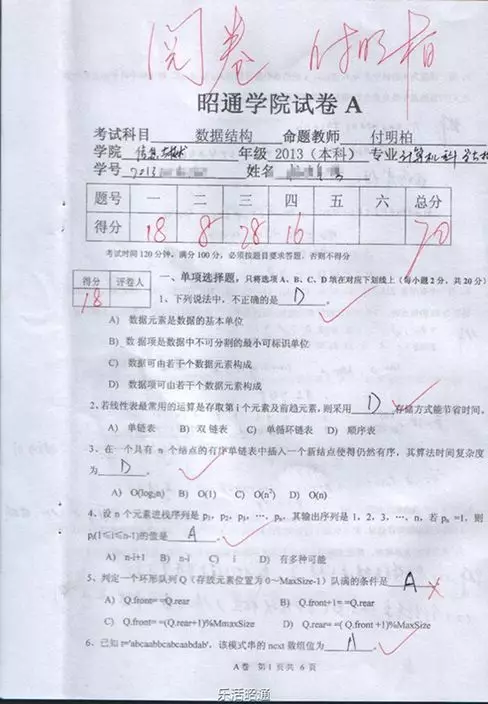 阅卷 付明柏
昭通学院试卷 A
考试科目 数据结构 命题教师 付明柏
学院 信息技术 年级 2013（本科） 专业 计算机科学
学号 2013 姓名
题号 一 二 三 四 五 六 总分
得分 18 8 28 16 70
考试时间 120 分钟，满分 100 分，必须按题目要求答题，否则不得分
得分 评卷人
18
一、单项选择题，只将选项 A、B、C、D 填在对应下划线上（每小题 2 分，共 20 分）
1、下列说法中，不正确的是 D 。
A) 数据元素是数据的基本单位
B) 数据项是数据中不可分割的最小可标识单位
C) 数据可由若干个数据元素构成
D) 数据项可由若干个数据元素构成
2、若线性表最常用的运算是存取第 i 个元素及前趋元素，则采用 D 存储方式能节省时间。
A) 单链表 B) 双链表 C) 单循环链表 D) 顺序表
3、在一个具有 n 个结点的有序单链表中插入一个新结点使得仍然有序，其算法时间复杂度
为 D 。
A) O(log₂n) B) O(1) C) O(n²) D) O(n)
4、设 n 个元素进栈序列是 p₁，p₂，p₃，…，pₙ，其输出序列是 1，2，3，…，n，若 pₙ =1，则
pᵢ(1≤i≤n-1)的值是 A 。
A) n-i+1 B) n-i C) i D) 有多种可能
5、判定一个环形队列 Q（存放元素位置为 0～MaxSize-1）队满的条件是 A
A) Q.front= =Q.rear B) Q.front+1= =Q.rear
C) Q.front= =(Q.rear+1)%MmaxSize D) Q.rear= =( Q.front +1)%MaxSize
6、已知 t='abcaabbcabcaabdab'，该模式串的 next 数组值为 A 。
A 卷 第 1 页共 6 页
乐活昭通